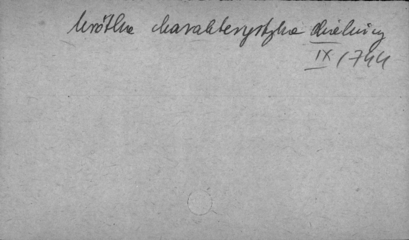 Krótka charakterystyka dzielnicy
IX/744